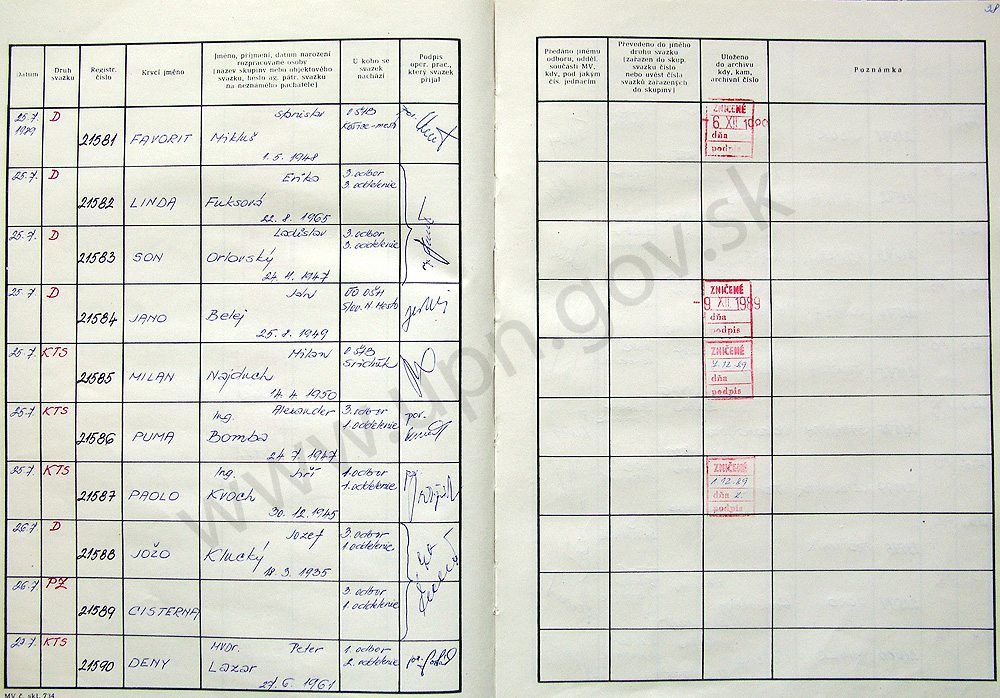 38
Datum
Druh svazku
Registr. číslo
Krycí jméno
Jméno, příjmení, datum narození rozpracované osoby
[název skupiny nebo objektového svazku, heslo ag. pátr. svazku na neznámého pachatele]
U koho se svazek nachází
Podpis oper. prac., který svazek přijal
Předáno jinému odboru, odděl. součásti MV, kdy, pod jakým čís. jednacím
Převedeno do jiného druhu svazku [zařazen do skup. svazku číslo nebo uvést čísla svazků zařazených do skupiny]
Uloženo do archivu kdy, kam, archivní číslo
Poznámka
25.7. 1989 D 21581 FAVORIT Mikluš Stanislav 1. 5. 1948 O ŠTB
ZNIČENÉ
6 XII 1989
dňa
podpis
25.7. D 21582 LINDA Erika Fuksová 22. 8. 1965 3. odbor 3. oddelenie
25.7. D 21583 SON Ladislav Orlovský 24. 11. 1947 3. odbor 3. oddelenie
25.7. D 21584 JANO Ján Belej 25. 8. 1949 N. Mesto
ZNIČENÉ
9 XII 1989
dňa
podpis
25.7. KTS 21585 MILAN Milan Najduch 14. 4. 1950 O ŠTB
ZNIČENÉ
12. 89
dňa
podpis
25.7. KTS 21586 PUMA Ing. Alexander Bomba 24. 7. 1947 3. odbor 1. oddelenie por.
25.7. KTS 21587 PAOLO Ing. Jiří Kvoch 30. 12. 1945 1. odbor 1. oddelenie
ZNIČENÉ
1. 12. 89
dňa
podpis
26.7. D 21588 JOŽO Jozef Klucký 18. 3. 1935 3. odbor 1. oddelenie
26.7. PZ 21589 CISTERNA 3. odbor 1. oddelenie
KTS 21590 DENY MVDr. Peter Lazar 27. 6. 1961 1. odbor 2. oddelenie
MV č. skl. 734
www.upn.gov.sk